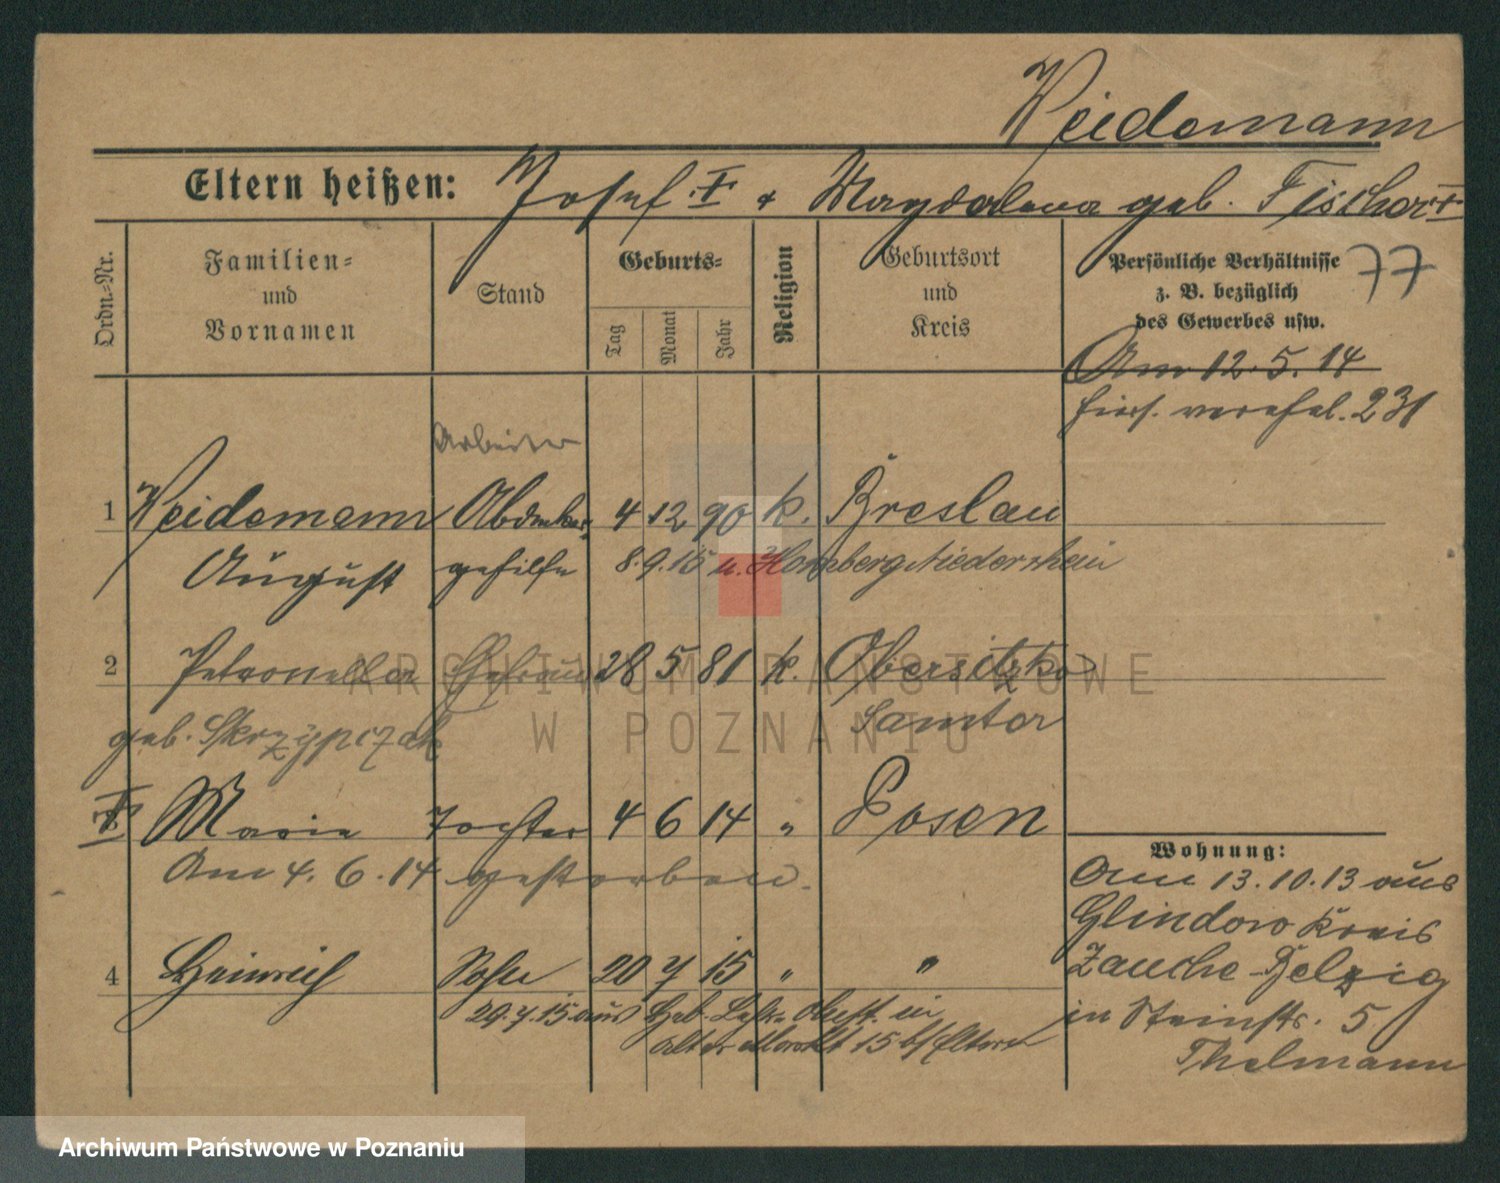 Weidemann
Eltern heißen: Josef † & Magdalena geb. Fischer †
Ordn.-Nr.
Familien-
und
Vornamen
Stand
Geburts-
Tag
Monat
Jahr
Religion
Geburtsort
und
Kreis
Persönliche Verhältnisse
z. B. bezüglich
des Gewerbes usw.
77
Am 12.5.14
hier 231
Arbeiter
1 Weidemann 4 12 90 k. Breslau
August gehilfe 8.9.15 n. Homberg Niederrhein
2 Petronella Ehefrau 28 5 81 k. Obersitzko
geb. Skrzypczak Samter
† Marie Tochter 4 6 14 " Posen
Am 4.6.14 gestorben.
4 Heinrich Sohn 20 7 15 " "
29.7.15 aus Heb. in
alter Markt 15 Eltern
Wohnung:
Am 13.10.13 aus
Glindow Kreis
Zauche-Belzig
in Steinstr. 5
Thelmann
ARCHIWUM PAŃSTWOWE
W POZNANIU
Archiwum Państwowe w Poznaniu